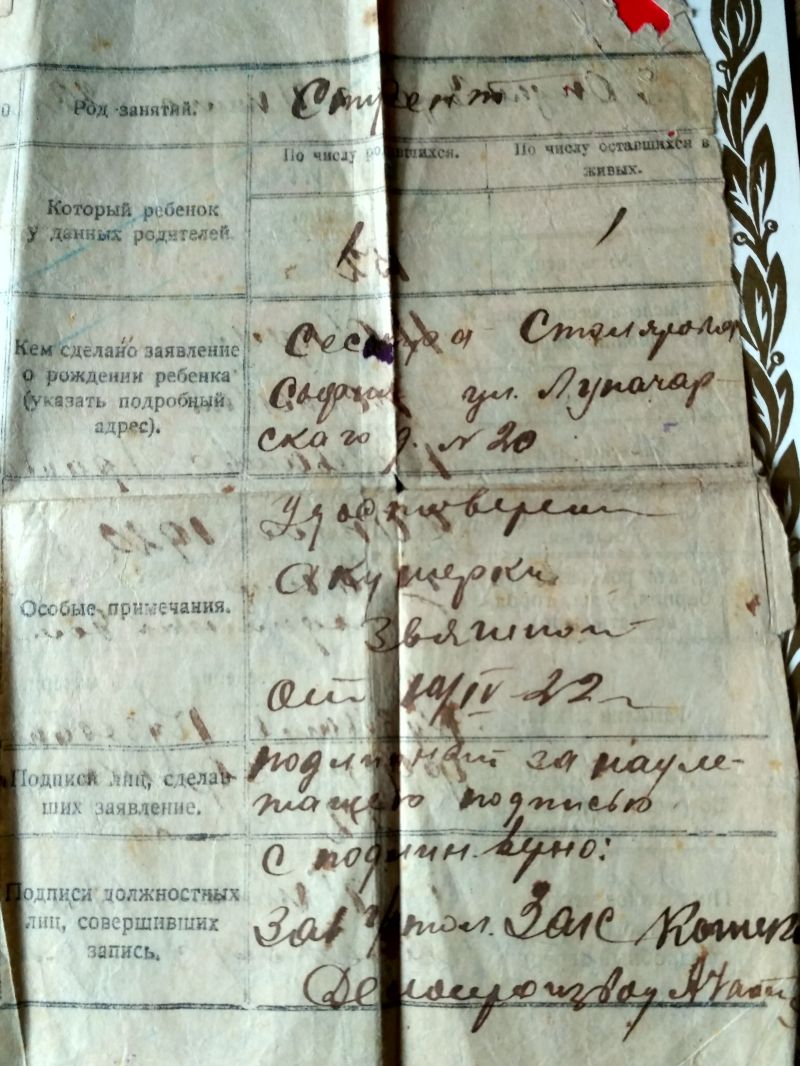 Род занятий.
Студент
По числу родившихся.
По числу оставшихся в
живых.
Который ребенок
у данных родителей.
1
1
Кем сделано заявление
о рождении ребенка
(указать подробный
адрес).
Сестра Столярова
ул. Луначар-
скаго д. № 20
Особые примечания.
Удостоверени
акушерки
Звягиной
от 10/IV-22 г
Подписи лиц, сделав-
ших заявление.
подлинный за надле-
жащею подписью
Подписи должностных
лиц, совершивших
запись.
с подлин. верно:
Зав п/стол. Загс
Делопроизвод